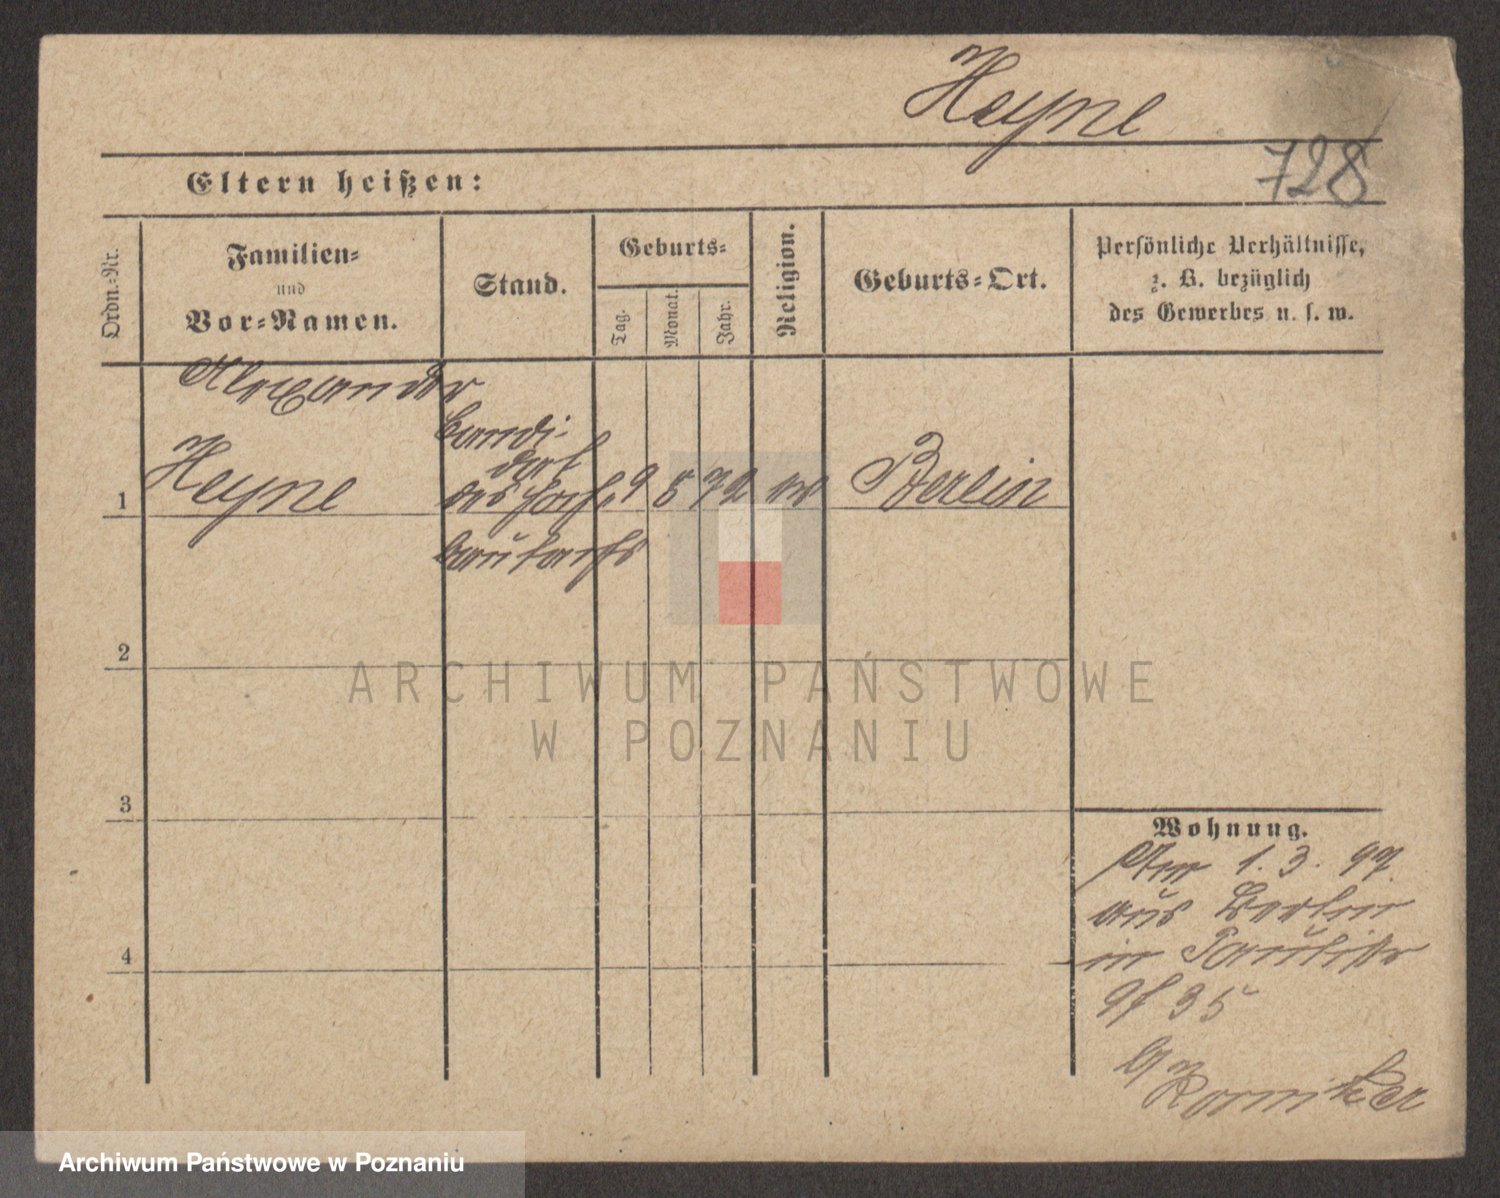 Heyne
728
Eltern heißen:
Ordn.-Nr.
Familien-
und
Vor-Namen.
Stand.
Geburts-
Tag.
Monat.
Jahr.
Religion.
Geburts-Ort.
Persönliche Verhältnisse,
z. B. bezüglich
des Gewerbes u. s. w.
Alexander
Heyne
Candi-
dat
des Hoch-
baufachs
1
9 5 72 ev Berlin
2
3
4
Wohnung.
1. 3. 97
aus Berlin
in Paulistr
35
ARCHIWUM PAŃSTWOWE
W POZNANIU
Archiwum Państwowe w Poznaniu